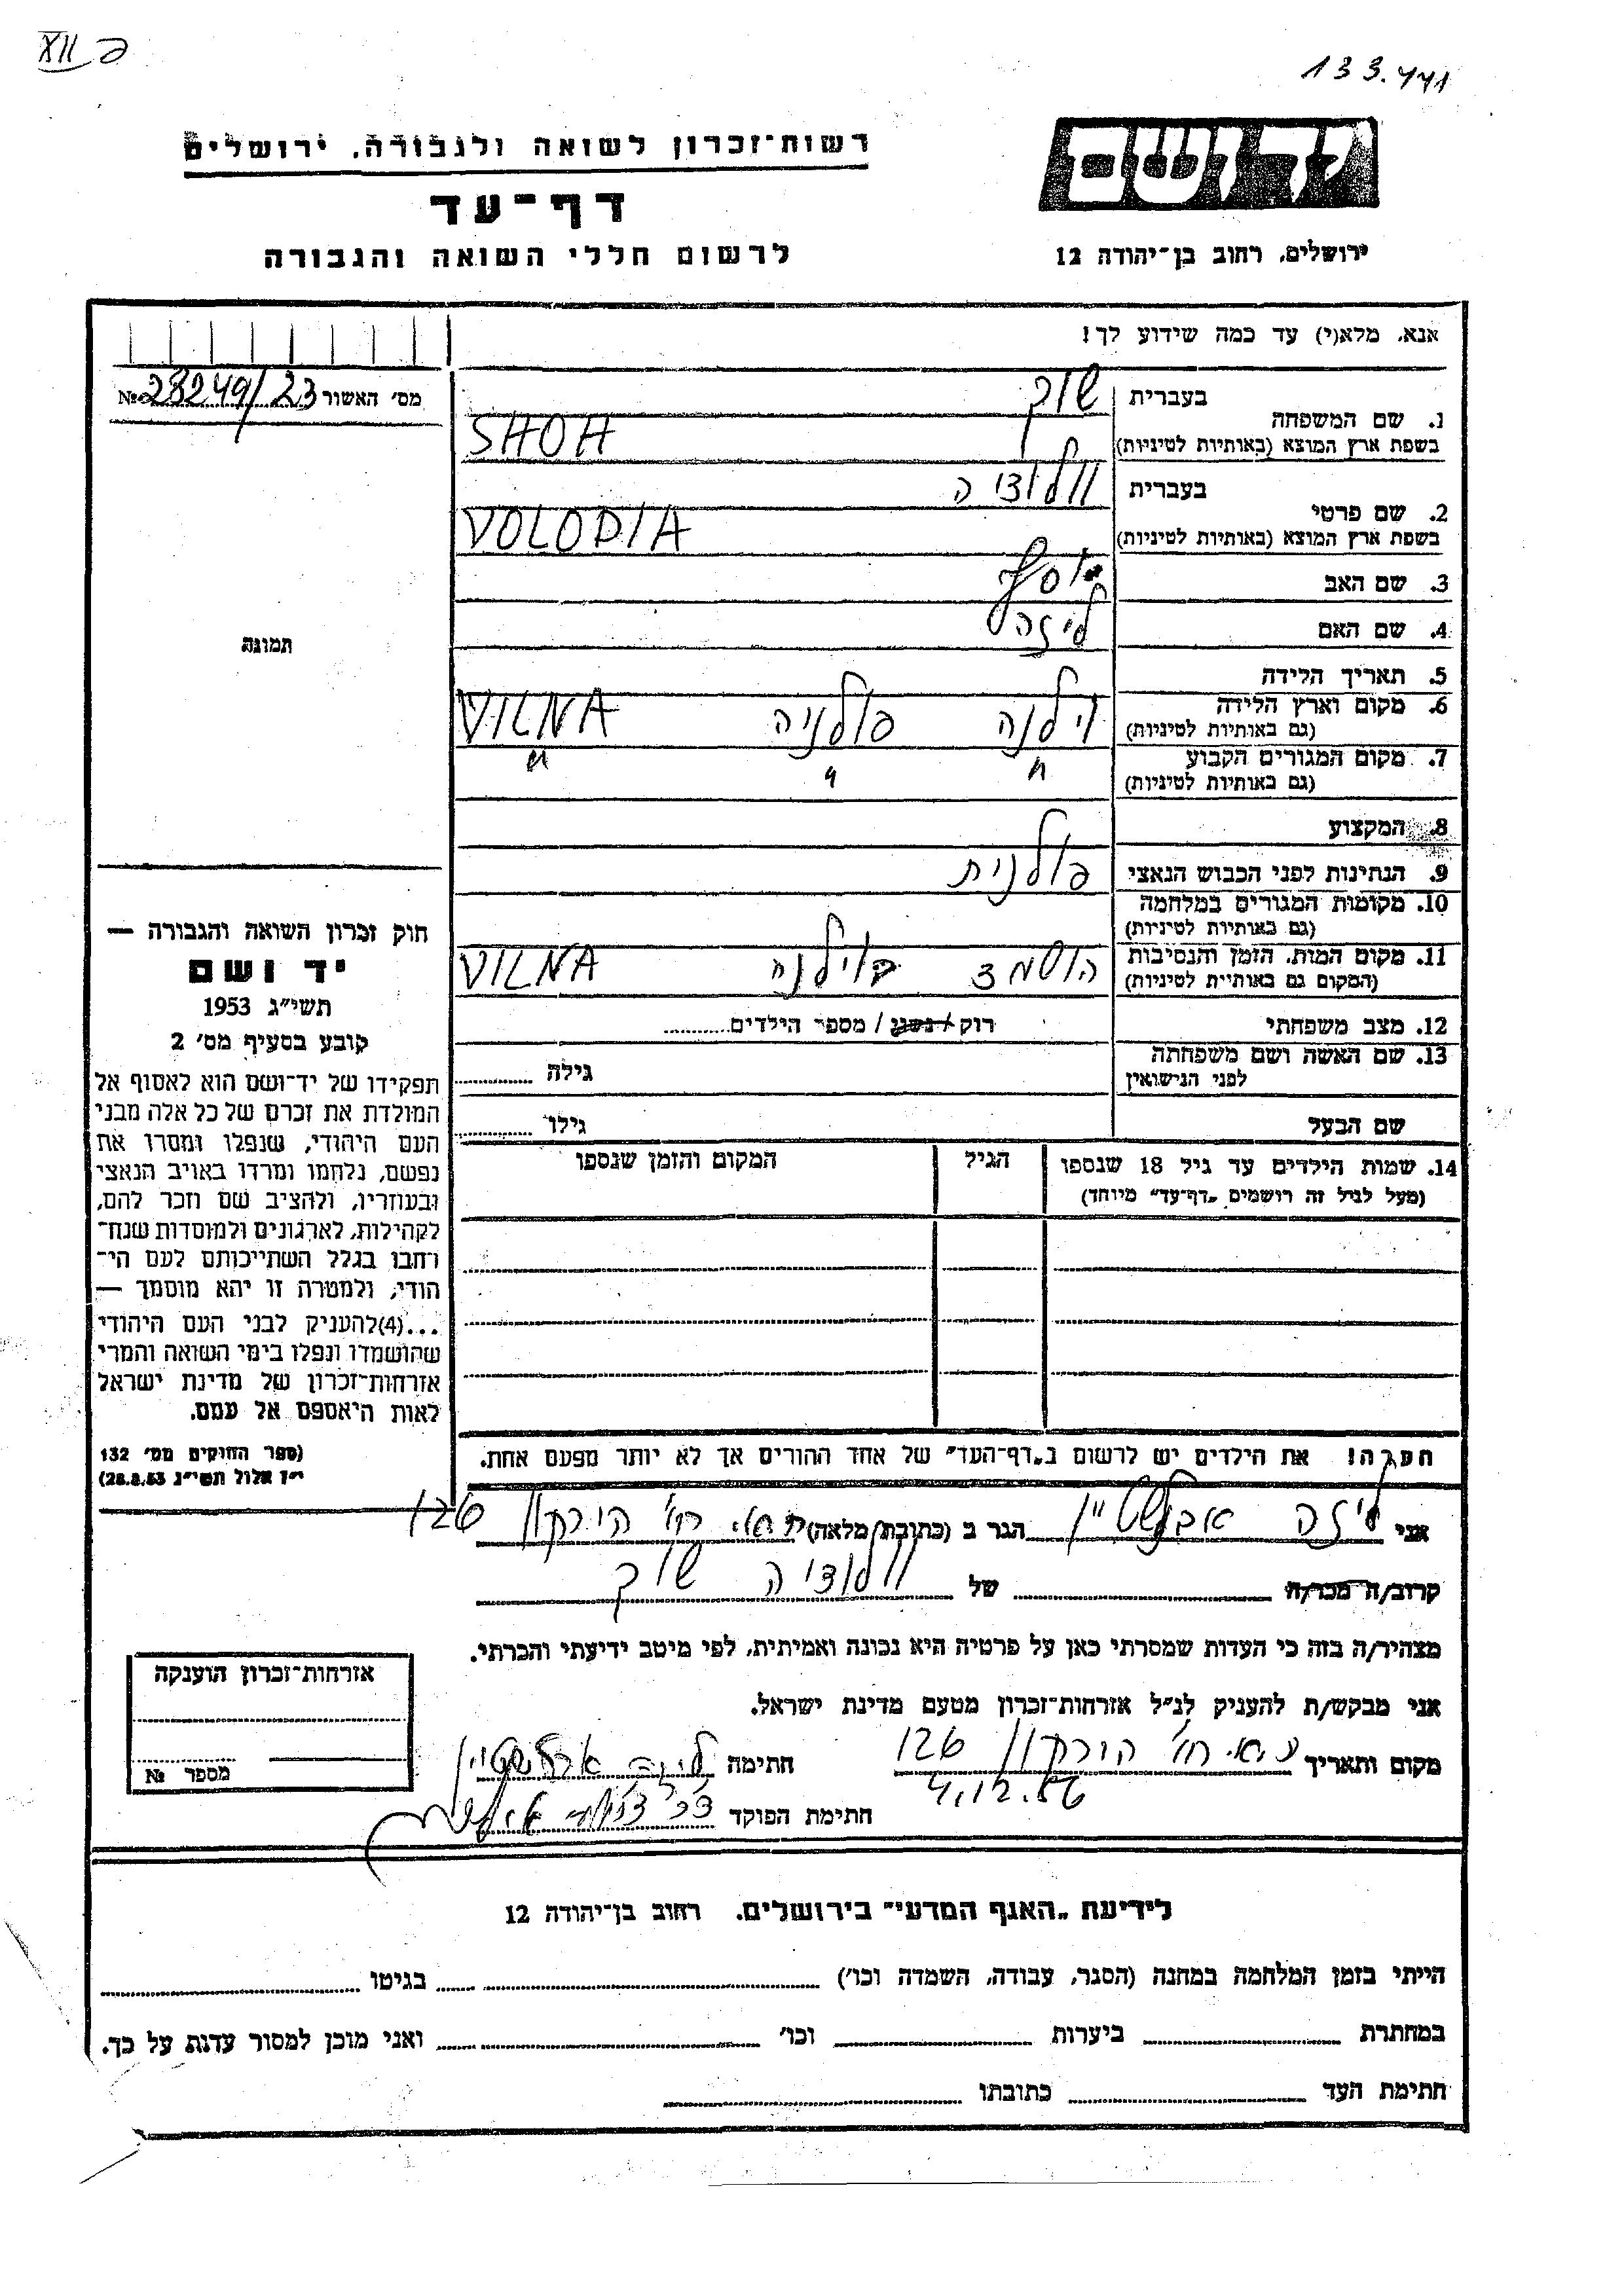 XII פ
133.441
יד ושם
רשות־זכרון לשואה ולגבורה, ירושלים
דף־עד
לרשום חללי השואה והגבורה
ירושלים, רחוב בן־יהודה 12
אנא, מלא(י) עד כמה שידוע לך!
מס׳ האשור 28249/23 №
1. שם המשפחה
בעברית שוק
בשפת ארץ המוצא (באותיות לטיניות) SHOH
2. שם פרטי
בעברית וולודיה
בשפת ארץ המוצא (באותיות לטיניות) VOLODIA
3. שם האב יוסף
4. שם האם ליזה
5. תאריך הלידה
6. מקום וארץ הלידה וילנה פולניה VILNA
(גם באותיות לטיניות)
7. מקום המגורים הקבוע " " "
(גם באותיות לטיניות)
8. המקצוע
9. הנתינות לפני הכבוש הנאצי פולנית
10. מקומות המגורים במלחמה
(גם באותיות לטיניות)
11. מקום המות, הזמן והנסיבות הושמד בוילנה VILNA
(המקום גם באותיית לטיניות)
12. מצב משפחתי רוק / נשוי / מספר הילדים
13. שם האשה ושם משפחתה גילה
לפני הנישואין
שם הבעל גילו
14. שמות הילדים עד גיל 18 שנספו הגיל המקום והזמן שנספו
(מעל לגיל זה רושמים „דף־עד״ מיוחד)
תמונה
חוק זכרון השואה והגבורה —
יד ושם
תשי״ג 1953
קובע בסעיף מס׳ 2
תפקידו של יד־ושם הוא לאסוף אל
המולדת את זכרם של כל אלה מבני
העם היהודי, שנפלו ומסרו את
נפשם, נלחמו ומרדו באויב הנאצי
ובעוזריו, ולהציב שם וזכר להם,
לקהילות, לארגונים ולמוסדות שנח־
רחבו בגלל השתייכותם לעם הי־
הודי, ולמטרה זו יהא מוסמך —
...(4)להעניק לבני העם היהודי
שהושמדו ונפלו בימי השואה והמרי
אזרחות־זכרון של מדינת ישראל
לאות היאספם אל עמם.
(ספר החוקים מס׳ 132
י״ז אלול תשי״ג 28.8.53)
הערה! את הילדים יש לרשום ב„דף־העד״ של אחד ההורים אך לא יותר מפעם אחת.
אני ליזה הגר ב (כתובת מלאה) ת.א. רח׳ הירקון 126
קרוב/ה מכר/ה של וולודיה שוק
מצהיר/ה בזה כי העדות שמסרתי כאן על פרטיה היא נכונה ואמיתית, לפי מיטב ידיעתי והכרתי.
אני מבקש/ת להעניק לנ״ל אזרחות־זכרון מטעם מדינת ישראל.
מקום ותאריך ת.א. רח׳ הירקון 126 חתימה
4.12.56
חתימת הפוקד
אזרחות־זכרון הוענקה
מספר №
לידיעת „האגף המדעי״ בירושלים, רחוב בן־יהודה 12
הייתי בזמן המלחמה במחנה (הסגר, עבודה, השמדה וכו׳) בגיטו
במחתרת ביערות וכו׳ ואני מוכן למסור עדות על כך.
חתימת העד כתובתו